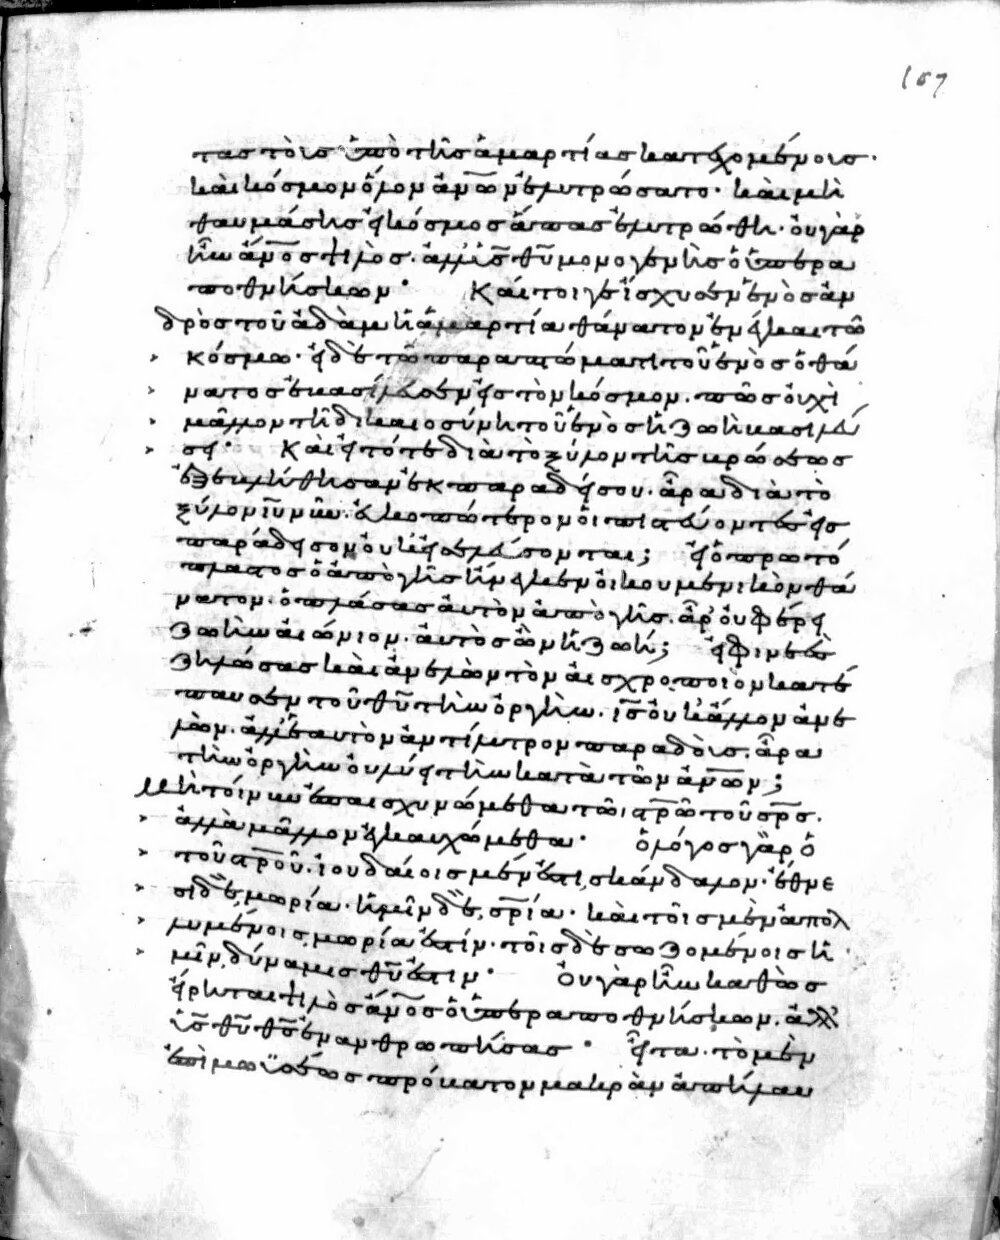 τας τοὺς ὑπὸ τῆς ἁμαρτίας κατεχομένους·
καὶ κόσμον ὅλον ἀν̅ω̅ν ἐλυτρώσατο· καὶ μὴ
θαυμάσῃς εἰ κόσμος ἅπας ἐλυτρώθη· οὐ γὰρ
ἦν ἄν̅ο̅ς ψιλὸς· ἀλλ' υἱς̅ θῦ̅ μονογενὴς ὁ ὑπερα
ποθνήσκων· Καίτοι γε ἴσχυσεν ἑνὸς ἀν
δρὸς τοῦ ἀδὰμ ἡ ἁμαρτία θάνατον ἐνεγκεῖν τῶ
κόσμω· εἰ δὲ τῶ παραπτώματι τοῦ ἑνὸς ὁ θά
νατος ἐβασίλευσεν εἰς τὸν κόσμον. πῶς οὐχὶ
μᾶλλον τῆ δικαιοσύνη τοῦ ἑνὸς ἡ ζωὴ βασιλεύ
σει· Καὶ εἰ τότε διὰ τὸ ξύλον τῆς βρώσεως
ἐξεβλήθησαν ἐκ παραδείσου· ἆρα διὰ τὸ
ξύλον ιῦ̅ νῦν εὐκοπώτερον οἱ πιστεύοντες εἰς
παράδεισον οὐκ εἰσελεύσονται; εἰ ὁ πρωτό
πλαστος ὁ ἀπὸ γῆς ἤνεγκεν οἰκουμενικὸν θά
νατον. ὁ πλάσας αὐτὸν ἀπὸ γῆς. ἆρ' οὐ φέρει
ζωὴν αἰώνιον. αὐτὸς ὢν ἡ ζωή; εἰ φινεὲς
ζηλώσας καὶ ἀνελὼν τὸν αἰσχροποιὸν κατέ
παυσεν τοῦ θῦ̅ τὴν ὀργὴν. ις̅ οὐκ ἄλλον ἀνε
λὼν. ἀλλ' ἑαυτὸν ἀντίλυτρον παραδοὺς. ἆρα
τὴν ὀργὴν οὐ λύει τὴν κατὰ τῶν ἀν̅ω̅ν;
Μὴ τοίνυν ἐπαισχυνώμεθα τῶ στ̅ρ̅ῶ τοῦ σρ̅ς̅.
ἀλλὰ μᾶλλον ἐγκαυχώμεθα· ὁ λόγος γὰρ ὁ
τοῦ στ̅ρ̅οῦ. ἰουδαίοις μέν ἐστι, σκάνδαλον· ἔθνε
σι δὲ, μωρία· ἡμῖν δὲ, σρ̅ία· καὶ τοῖς μὲν ἀπολ
λυμένοις, μωρία ἐστίν· τοῖς δὲ σωζομένοις ἡ
μῖν, δύναμις θῦ̅ ἐστιν· Οὐ γὰρ ἦν καθὼς
εἴρηται ψιλὸς ἄν̅ο̅ς ὁ ὑπεραποθνήσκων. ἀλλ'
υἱς̅ θῦ̅ θς̅ ἐνανθρωπήσας· εἶτα· τὸ μὲν
ἐπὶ μωϋσέως πρόβατον μακρὰν ἀπήλαυ